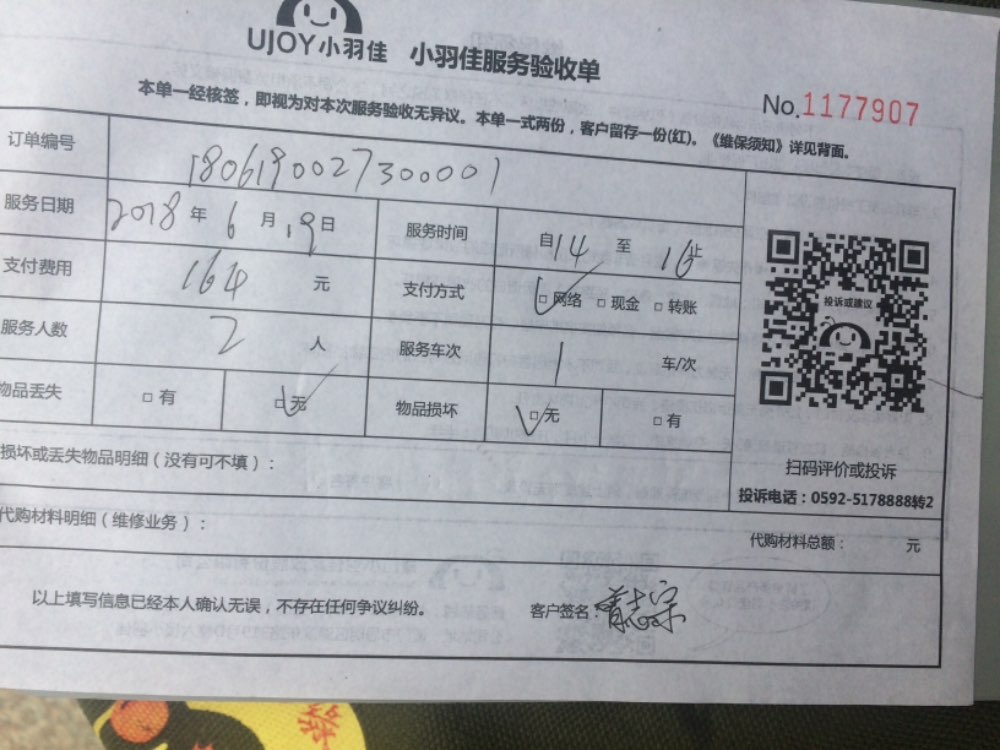 UJOY小羽佳 小羽佳服务验收单
No.1177907
本单一经核签，即视为对本次服务验收无异议。本单一式两份，客户留存一份(红)。《维保须知》详见背面。
订单编号 1806190027300001
服务日期 2018 年 6 月 19 日 服务时间 自14 至 16止
支付费用 164 元 支付方式 □网络 □现金 □转账
服务人数 2 人 服务车次 1 车/次
物品丢失 □有 □无 物品损坏 □无 □有
投诉或建议
扫码评价或投诉
投诉电话：0592-5178888转2
损坏或丢失物品明细（没有可不填）：
代购材料明细（维修业务）：
代购材料总额： 元
以上填写信息已经本人确认无误，不存在任何争议纠纷。 客户签名：